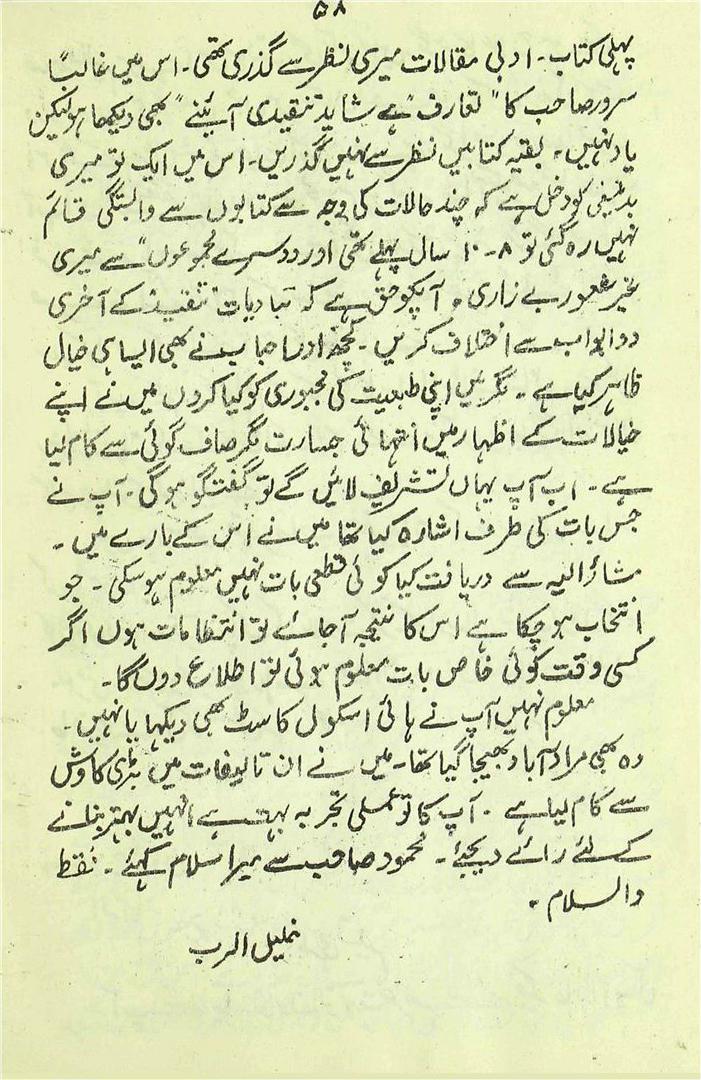 ۵۸
پہلی کتاب۔ ادبی مقالات میری نظر سے گذری تھی۔ اس میں غالباً
سرور صاحب کا "تعارف" ہے شاید "تنقیدی آئینے" بھی دیکھا ہو لیکن
یاد نہیں۔ بقیہ کتابیں نظر سے نہیں گذریں۔ اس میں ایک تو میری
بدنصیبی کو دخل ہے کہ چند حالات کی وجہ سے کتابوں سے وابستگی قائم
نہیں رہ گئی تو ۸-۱۰ سال پہلے تھی اور دوسرے مجموعوں" سے میری
غیر شعور بے زاری۔ آپکو حق ہے کہ مبادیات تنقید کے آخری
دو ابواب سے اختلاف کریں۔ کچھ اور احباب نے بھی ایسا ہی خیال
ظاہر کیا ہے۔ مگر میں اپنی طبیعت کی مجبوری کو کیا کروں میں نے اپنے
خیالات کے اظہار میں انتہائی جسارت مگر صاف گوئی سے کام لیا
ہے۔ اب آپ یہاں تشریف لائیں گے تو گفتگو ہو گی۔ آپ نے
جس بات کی طرف اشارہ کیا تھا میں نے اس کے بارے میں۔
مشارٌ الیہ سے دریافت کیا کوئی قطعی بات نہیں معلوم ہو سکی۔ جو
انتخاب ہو چکا ہے اس کا نتیجہ آجائے تو انتظامات ہوں اگر
کسی وقت کوئی خاص بات معلوم ہوئی تو اطلاع دوں گا۔
معلوم نہیں آپ نے ہائی اسکول کا سٹ بھی دیکھا یا نہیں۔
وہ بھی مرادآباد بھیجا گیا تھا۔ میں نے ان تالیفات میں بڑی کاوش
سے کام لیا ہے۔ آپ کا تو عملی تجربہ بہت ہے انہیں بہتر بنانے
کے لئے رائے دیجئے۔ محمود صاحب سے میرا سلام کہئے۔ فقط
والسلام۔
الرب